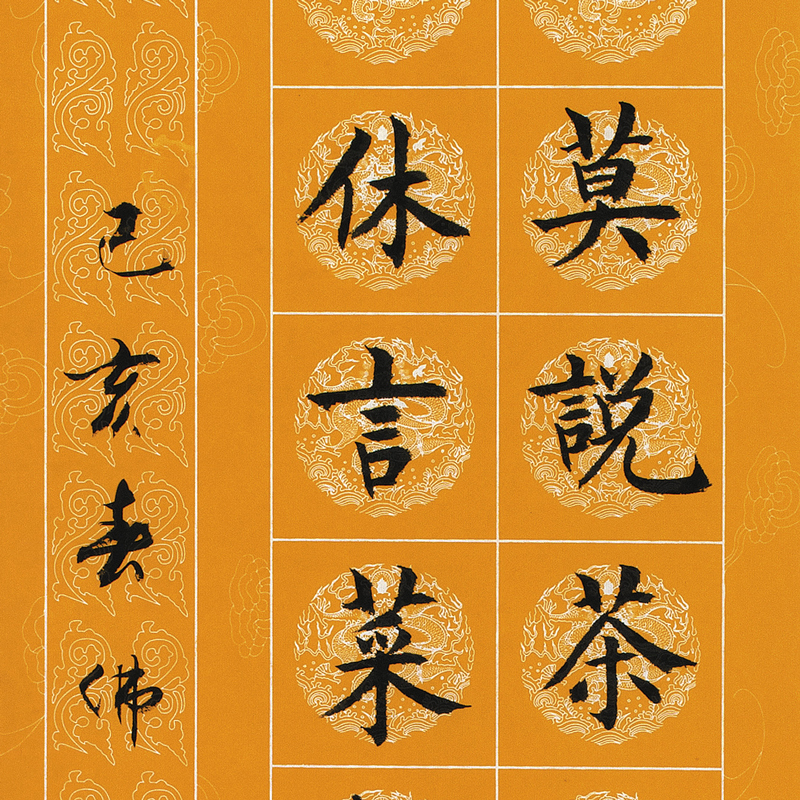 莫說茶
休言菜
己亥春佛